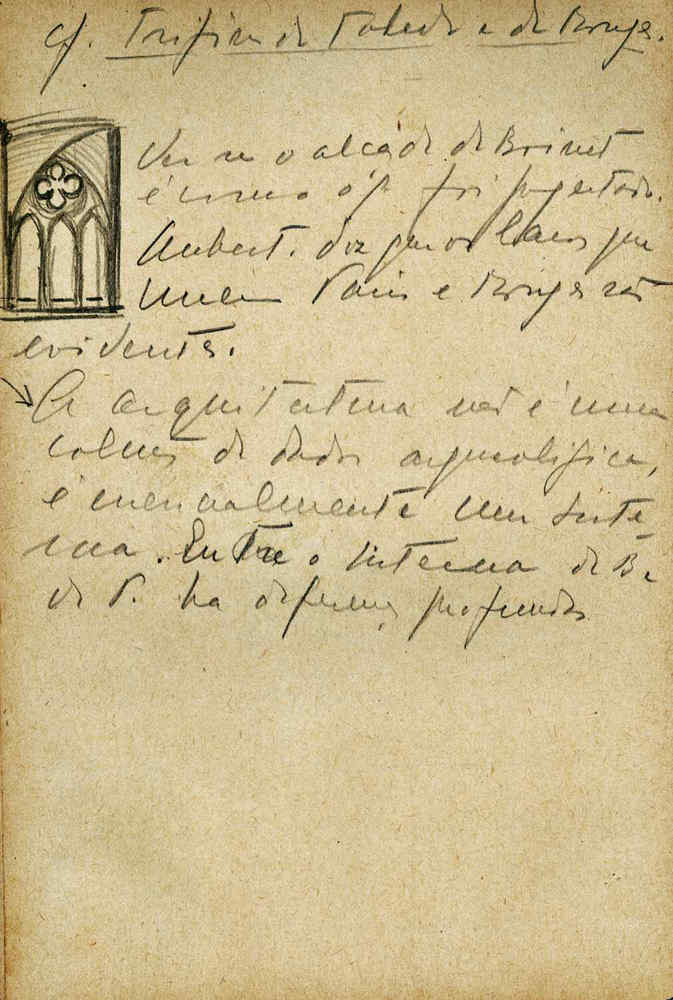 cf. Trifório de Toledo e de Bourges.
Ver se o alçado de Brinet
é como o q. foi sugestado.
Aubert. diz que os laços que
unem Paris e Bourges são
evidentes.
A arquitectura não é uma
colecção de dados arqueológicos,
é essencialmente um siste-
ma. Entre o sistema de B. e
de P. há diferenças profundas